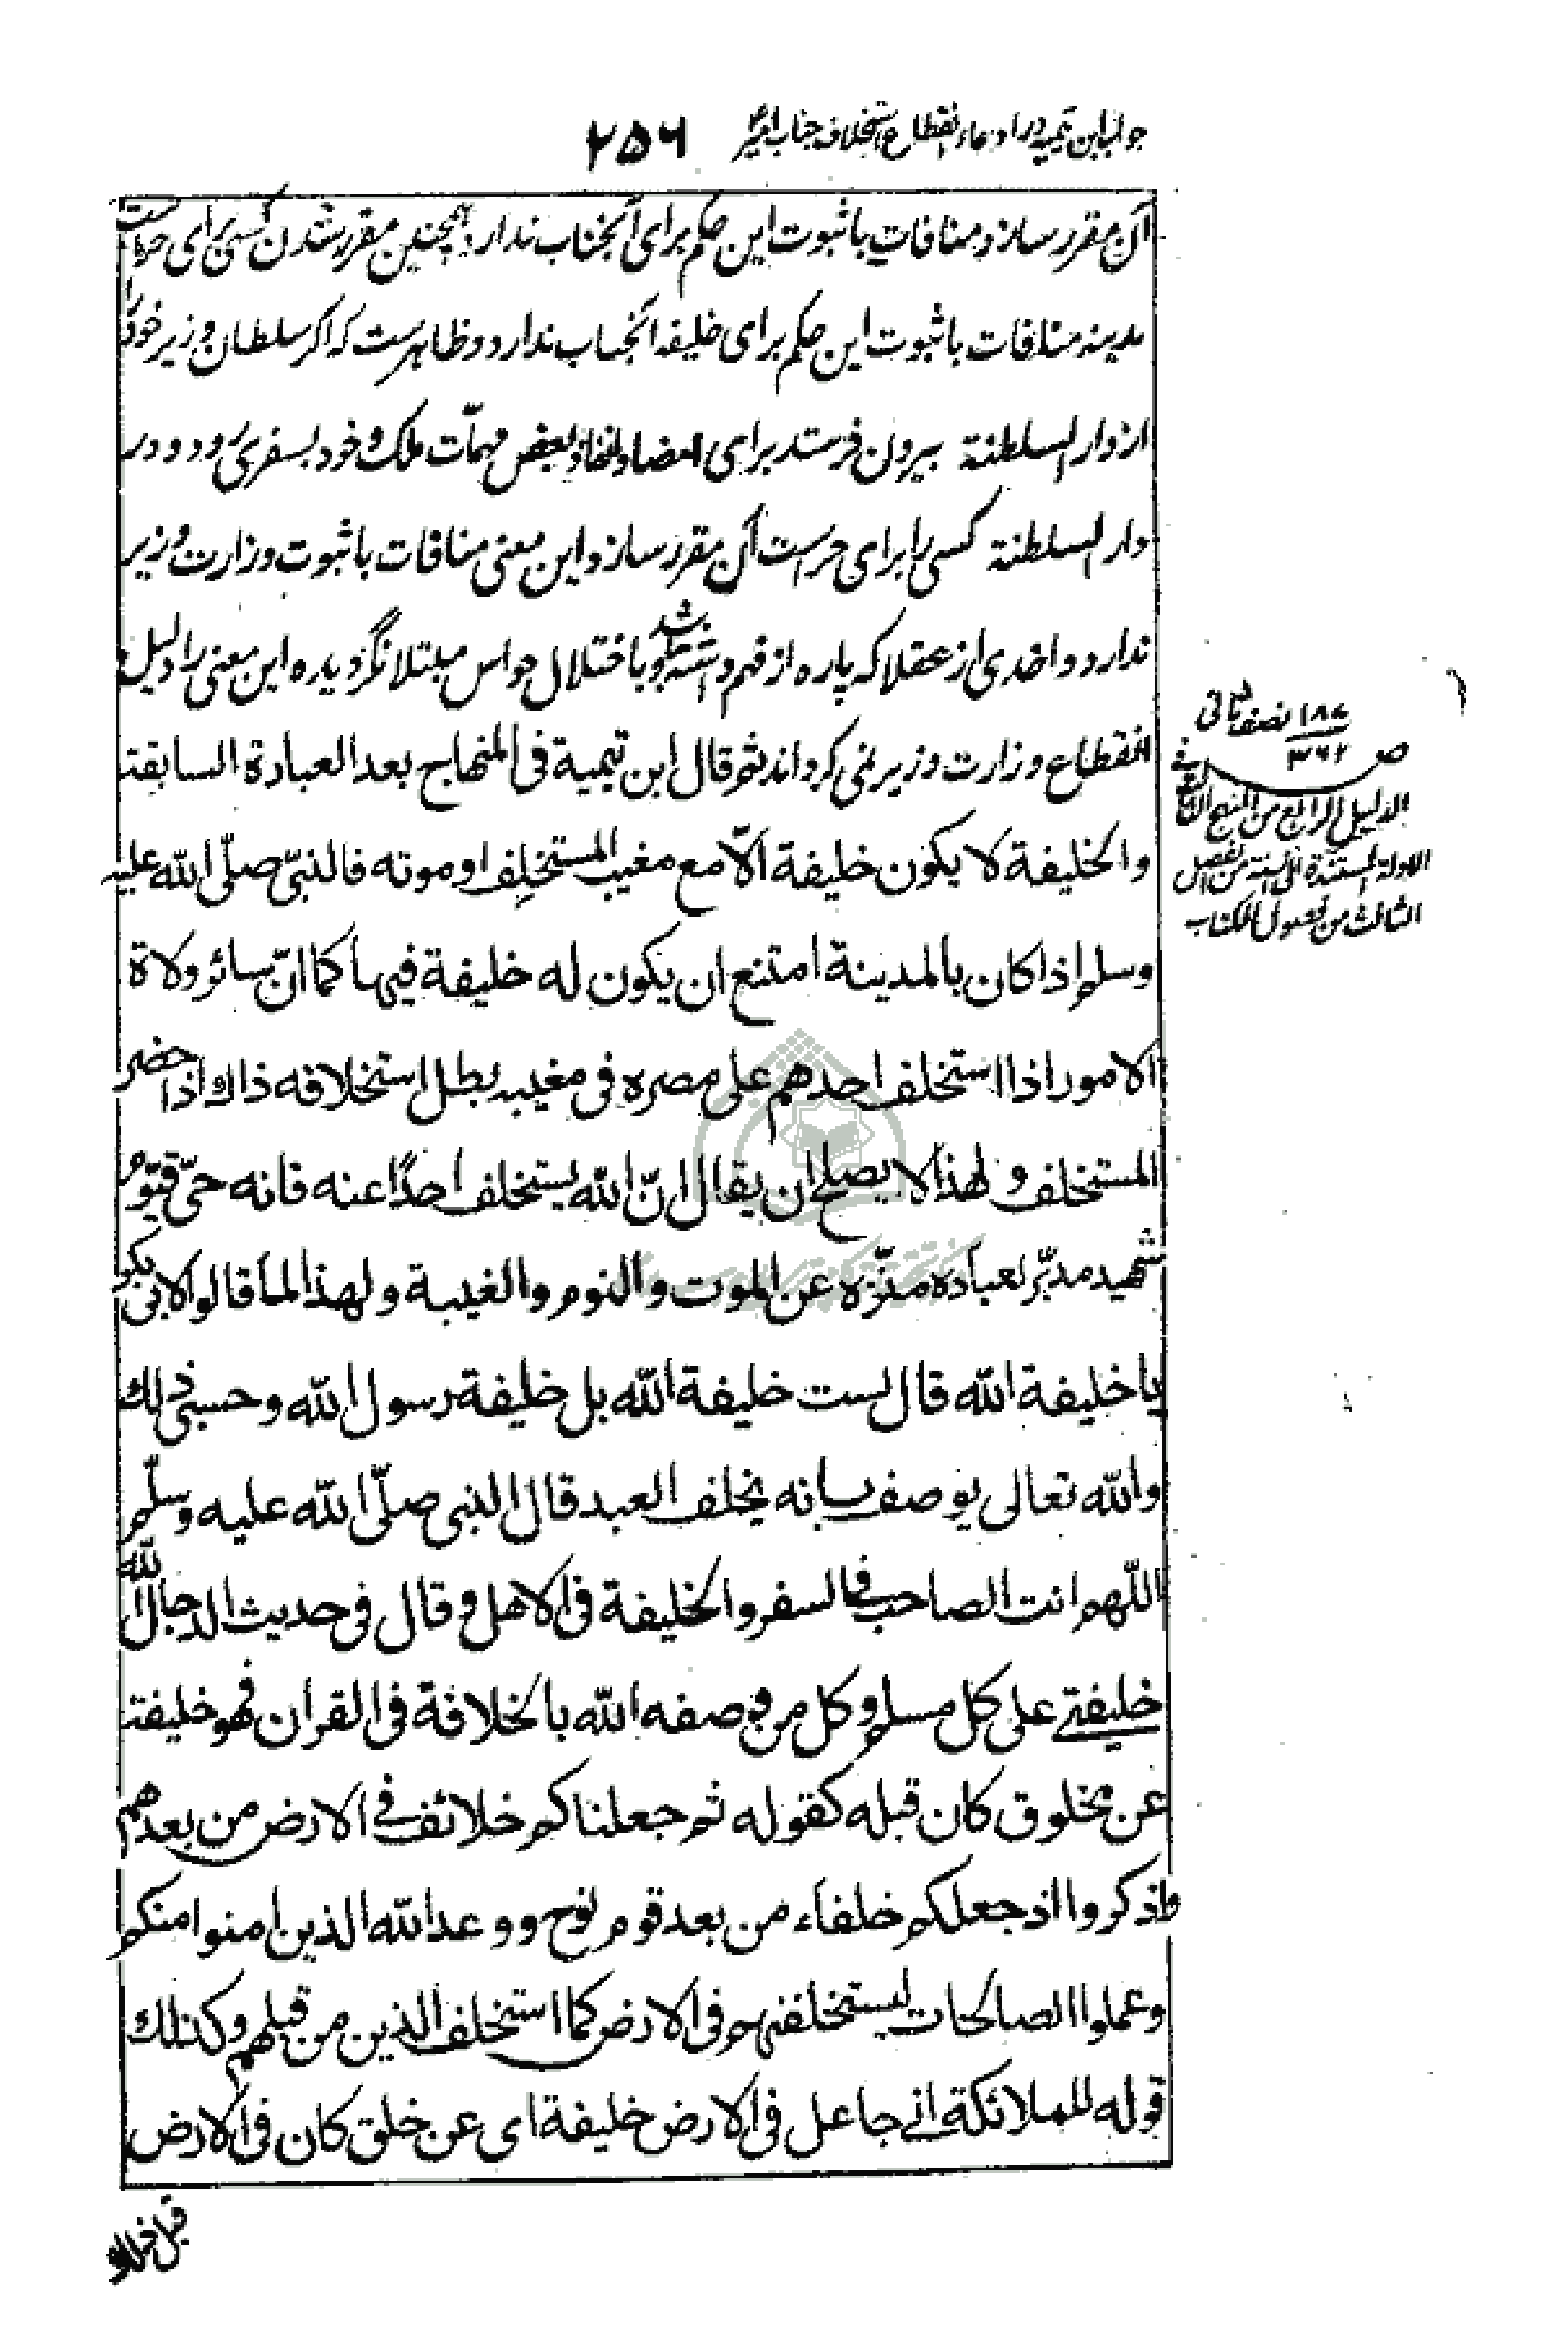 جواب ابن تیمیه در ادعاء انقطاع استخلاف جناب امیر ۲۵۶
آن مقرر سازد منافات با ثبوت این حکم برای آنجناب ندارد همچنین مقرر شدن کسی برای حراست
مدینه منافات با ثبوت این حکم برای خلیفه آنجناب ندارد و ظاهرست که اگر سلطان وزیر خود را
از دار السلطنة بیرون فرستد برای امضا و انفاذ بعض مهمّات ملک و خود بسفری رود و در
دار السلطنة کسی را برای حراست آن مقرر سازد این معنی منافات با ثبوت وزارت وزیر
ندارد و احدی از عقلا که پاره از فهم داشته باشد و باختلال حواس مبتلا نگردیده این معنی را دلیل
انقطاع وزارت وزیر نمی گرداند ثم قال ابن تیمیة فی المنهاج بعد العبارة السابقة
والخلیفة لا یکون خلیفة الّا مع مغیب المستخلِف او موته فالنبیّ صلّی الله علیه
وسلم اذا کان بالمدینة امتنع ان یکون له خلیفة فیها کما انّ سائر ولاة
الامور اذا استخلف احدهم علی مصره فی مغیبه بطل استخلافه ذاك اذا حضر
المستخلف ولهذا لا یصلح ان یقال انّ الله یستخلف احدًا عنه فانه حیّ قیّوم
شهید مدبّر لعباده منزّه عن الموت والنوم والغیبة ولهذا لما قالوا لابی بکر
یا خلیفة الله قال لست خلیفة الله بل خلیفة رسول الله وحسبی ذلك
والله تعالی یوصف بانه یخلف العبد قال النبی صلّی الله علیه وسلّم
اللّهم انت الصاحب فی السفر والخلیفة فی الاهل وقال فی حدیث الدجال الله
خلیفتی علی کل مسلم وکل من وصفه الله بالخلافة فی القرآن فهو خلیفة
عن مخلوق کان قبله کقوله ثم جعلناکم خلائف فی الارض من بعدهم
واذکروا اذ جعلکم خلفاء من بعد قوم نوح ووعد الله الذین امنوا منکم
وعملوا الصالحات لیستخلفنهم فی الارض کما استخلف الذین من قبلهم وکذلك
قوله للملائکة انی جاعل فی الارض خلیفة ای عن خلق کان فی الارض
قبل ذلك
نصف ثانی
ص
الدلیل الرابع من المنهج
الادلة المستندة الی السنة من الفصل
الثالث من فصول الکتاب